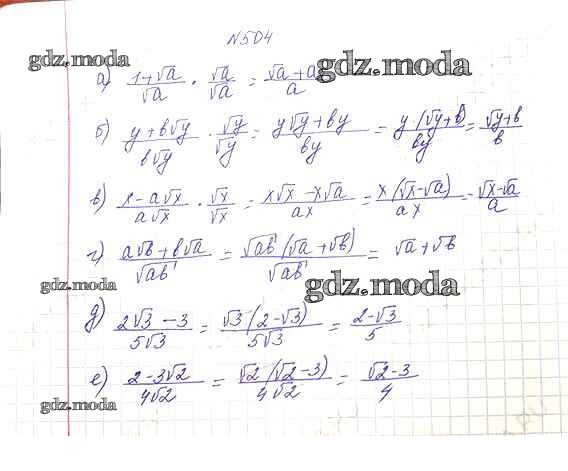 N504
gdz.moda
gdz.moda
а) (1+√a)/√a · √a/√a = (√a+a)/a
б) (y+b√y)/(b√y) · √y/√y = (y√y+by)/(by) = (y·(√y+b))/(by) = (√y+b)/b
в) (x-a√x)/(a√x) · √x/√x = (x√x-x√a)/(ax) = (x(√x-√a))/(ax) = (√x-√a)/a
г) (a√b+b√a)/√ab = (√ab(√a+√b))/√ab = √a+√b
gdz.moda
gdz.moda
д) (2√3-3)/(5√3) = (√3(2-√3))/(5√3) = (2-√3)/5
е) (2-3√2)/(4√2) = (√2(√2-3))/(4√2) = (√2-3)/4
gdz.moda